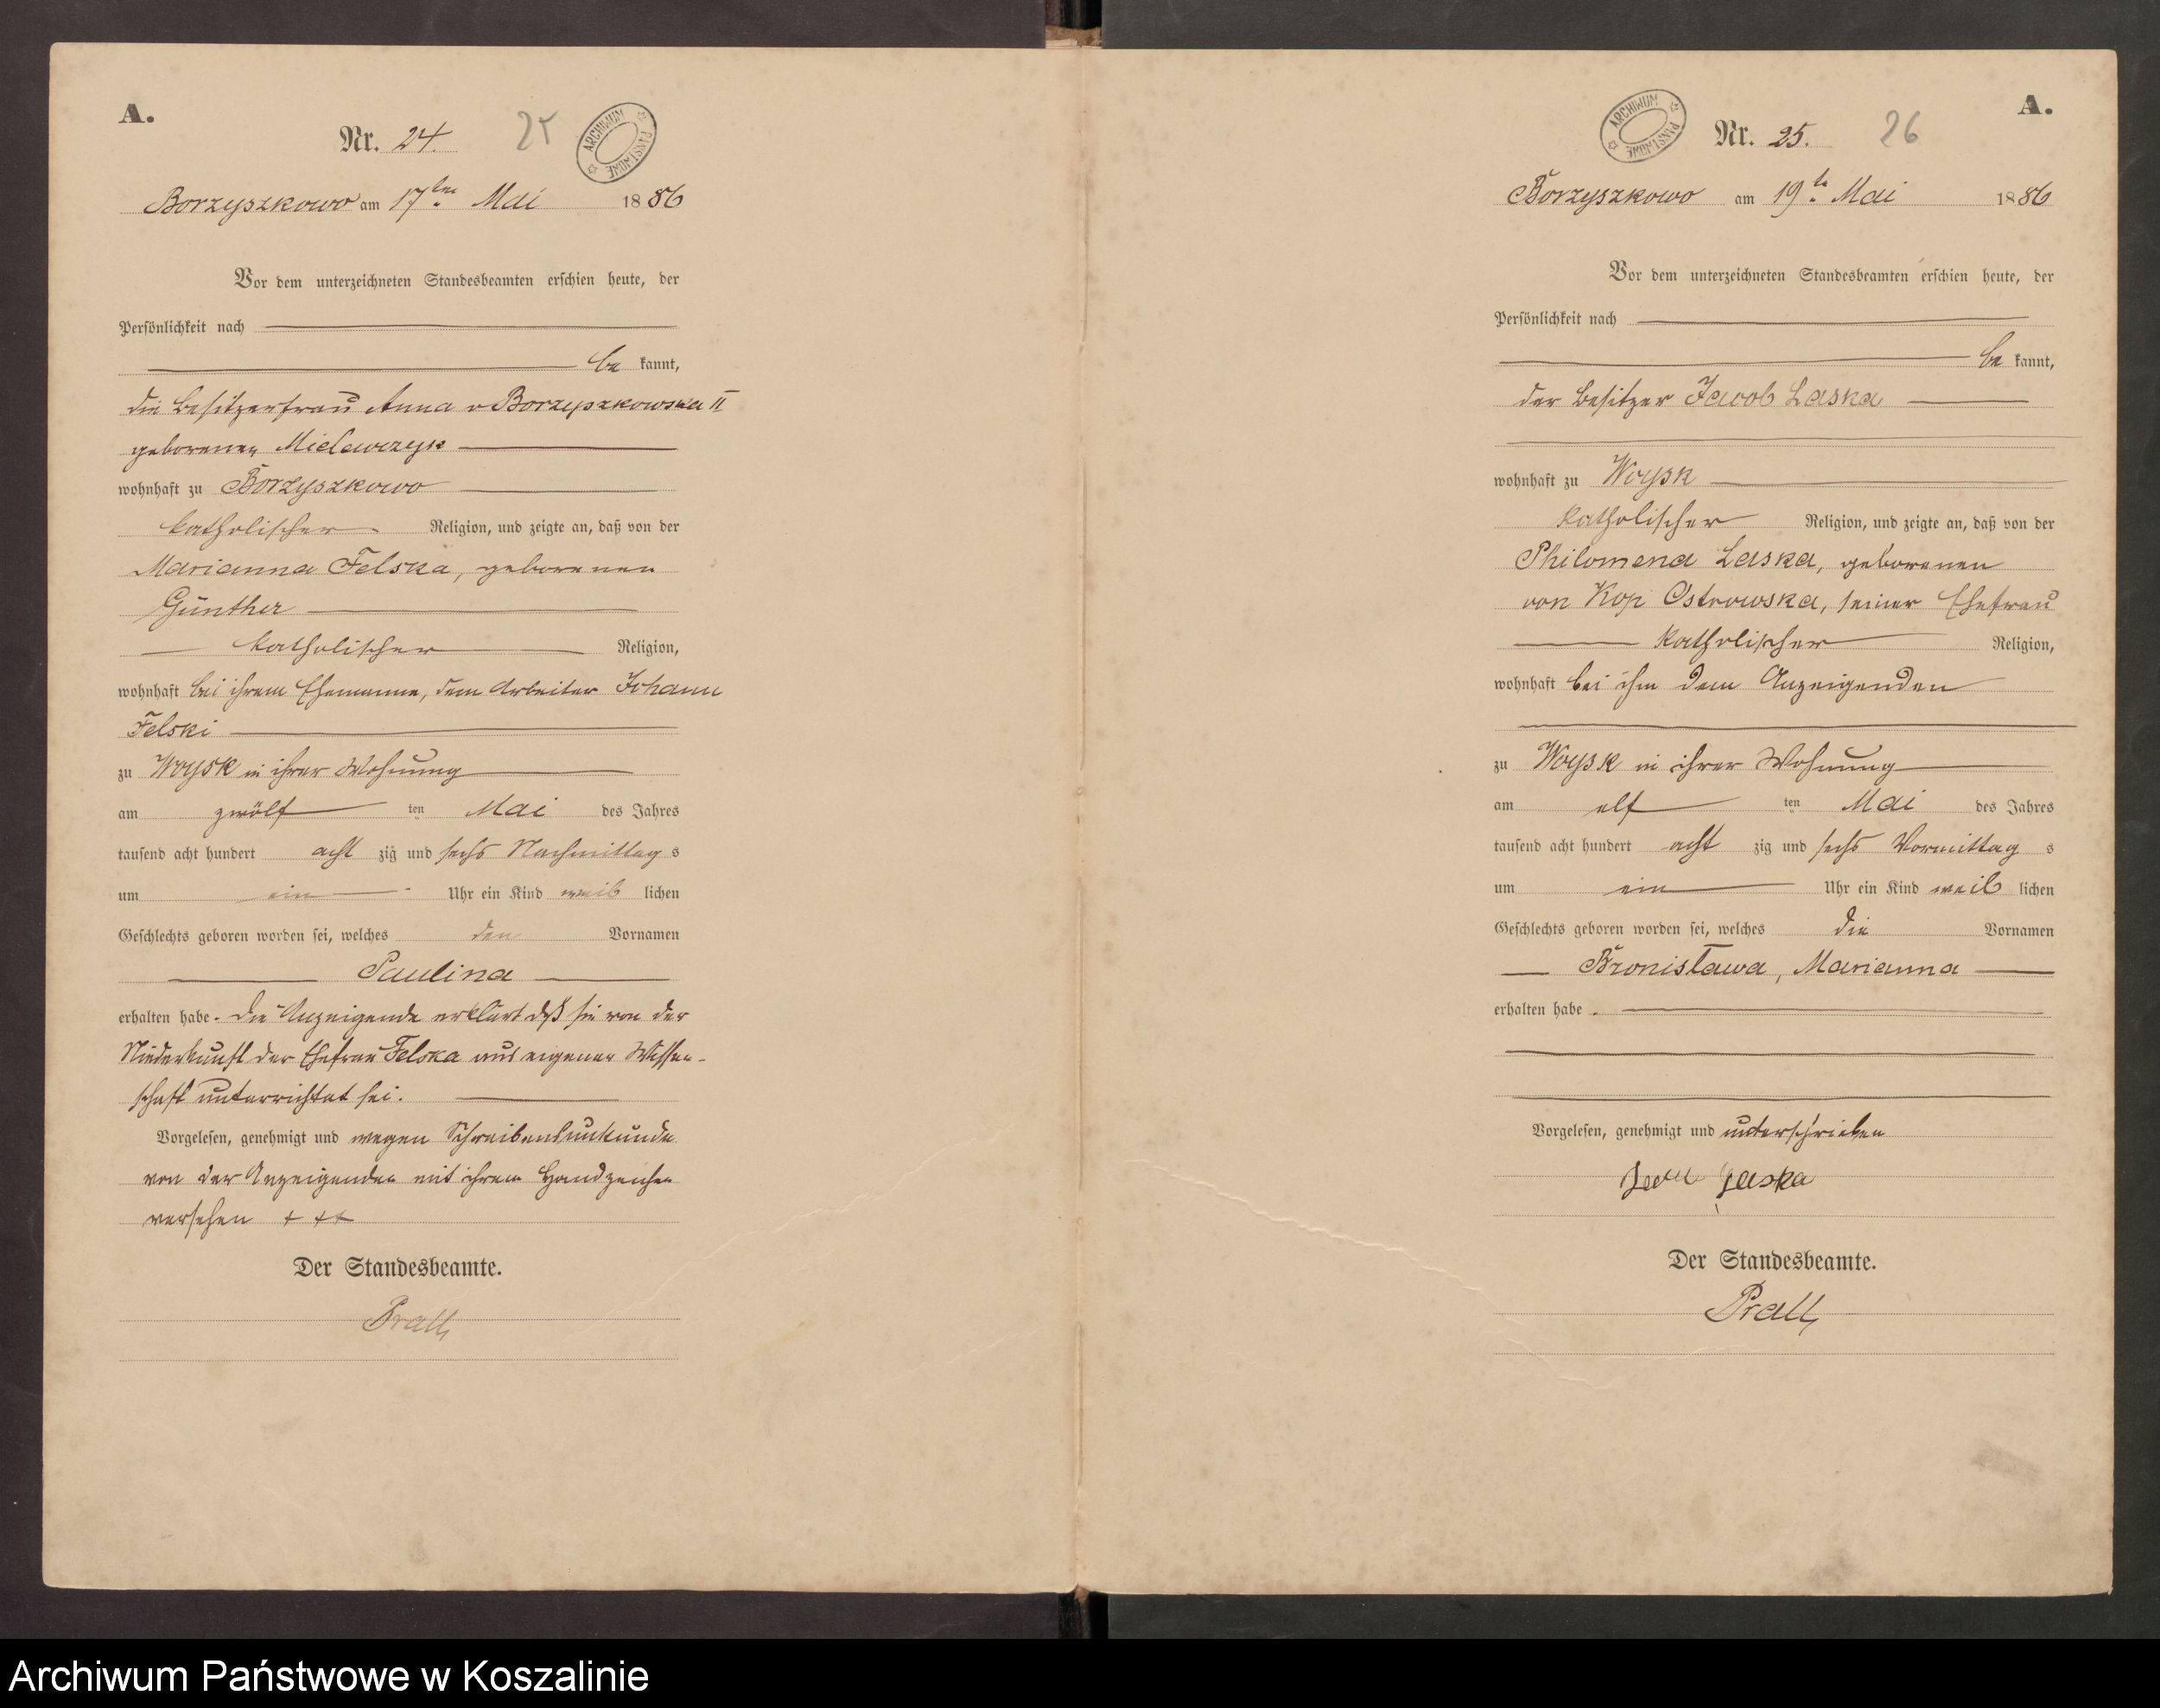 A.
Nr. 24.
25
ARCHIWUM PAŃSTWOWE
Borzyszkowo am 17ten Mai 1886
Vor dem unterzeichneten Standesbeamten erschien heute, der
Persönlichkeit nach
be kannt,
die Besitzerfrau Anna v Borzyszkowska II
geborenen Mielewczyk
wohnhaft zu Borzyszkowo
katholischer Religion, und zeigte an, daß von der
Marianna Felska, geborenen
Günther
katholischer Religion,
wohnhaft bei ihrem Ehemanne, dem Arbeiter Johann
Felski
zu Woysk in ihrer Wohnung
am zwölf ten Mai des Jahres
tausend acht hundert acht zig und sechs Nachmittag s
um ein Uhr ein Kind weib lichen
Geschlechts geboren worden sei, welches den Vornamen
Paulina
erhalten habe. Die Anzeigende erklärt daß sie von der
Niederkunft der Ehefrau Felska aus eigener Wissen-
schaft unterrichtet sei.
Vorgelesen, genehmigt und wegen Schreibensunkunde
von der Anzeigenden mit ihrem Handzeichen
versehen + ++
Der Standesbeamte.
Prall
A.
ARCHIWUM PAŃSTWOWE
Nr. 25.
26
Borzyszkowo am 19te Mai 1886
Vor dem unterzeichneten Standesbeamten erschien heute, der
Persönlichkeit nach
be kannt,
der Besitzer Jacob Laska
wohnhaft zu Woysk
katholischer Religion, und zeigte an, daß von der
Philomena Laska, geborenen
von Kop Ostrowska, seiner Ehefrau
katholischer Religion,
wohnhaft bei ihm dem Anzeigenden
zu Woysk in ihrer Wohnung
am elf ten Mai des Jahres
tausend acht hundert acht zig und sechs Vormittag s
um ein Uhr ein Kind weib lichen
Geschlechts geboren worden sei, welches die Vornamen
Bronisława, Marianna
erhalten habe.
Vorgelesen, genehmigt und unterschrieben
Laska
Der Standesbeamte.
Prall
Archiwum Państwowe w Koszalinie